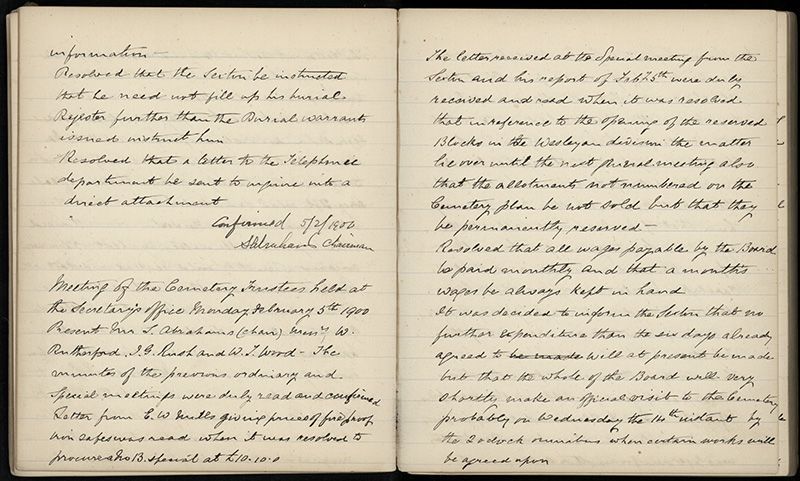 information —
Resolved that the Sexton be instructed
that he need not fill up his burial
Register further than the Burial warrants
issued instruct him
Resolved that a letter to the Telephone
department be sent to inquire into a
direct attachment
Confirmed 5/2/1900
S Abrahams Chairman
Meeting of the Cemetery Trustees held at
the Secretary's office Monday February 5th 1900
Present Mr S. Abrahams (chair) Messrs W.
Rutherford, J. G. Rush and W. T. Wood — The
minutes of the previous ordinary and
Special meetings were duly read and confirmed
Letter from E. W. Mills giving prices of fire proof
iron safes was read when it was resolved to
procure a No B. special at £10-10-0
The letter received at the Special meeting from the
Sexton and his report of Feb 5th were duly
received and read when it was resolved
that in reference to the opening of the reserved
Blocks in the Wesleyan division the matter
lie over until the next general meeting also
that the allotments not numbered on the
Cemetery plan be not sold but that they
be permanently reserved —
Resolved that all wages payable by the Board
be paid monthly and that a month's
wages be always kept in hand
It was decided to inform the Sexton that no
further expenditure than the six days already
agreed to be made will at present be made
but that the whole of the Board will very
shortly make an official visit to the Cemetery
probably on Wednesday the 14th instant by
the 2 oclock omnibus when certain works will
be agreed upon